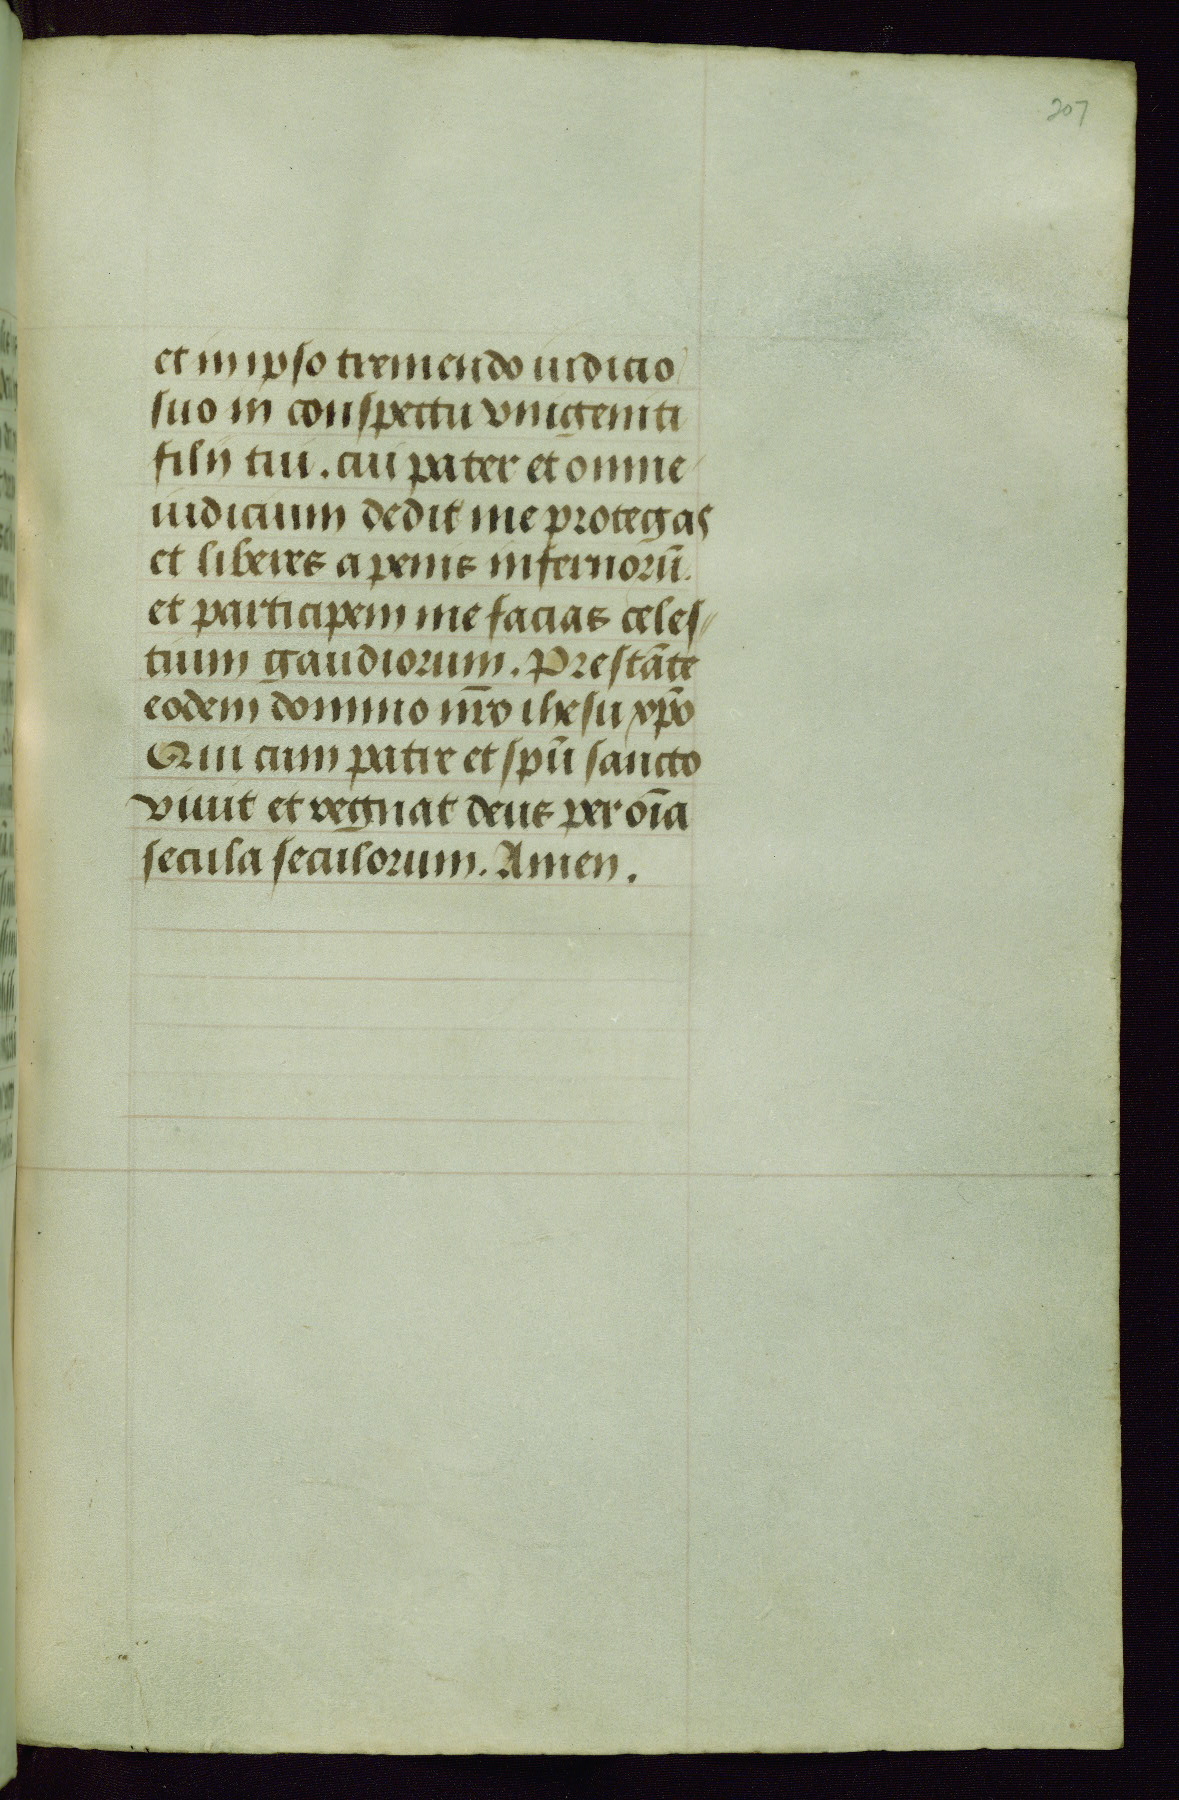 207
et in ipso tremendo iudicio
suo in conspectu vnigeniti
filij tui . cui pater et omne
iudicium dedit me protegas
et liberes a penis infernorū.
et participem me facias celes=
tium gaudiorum . Prestāte
eodem domino nr̄o ihesu xp̄o
Qui cum patre et spū sancto
viuit et regnat deus per oīa
secula seculorum . Amen .